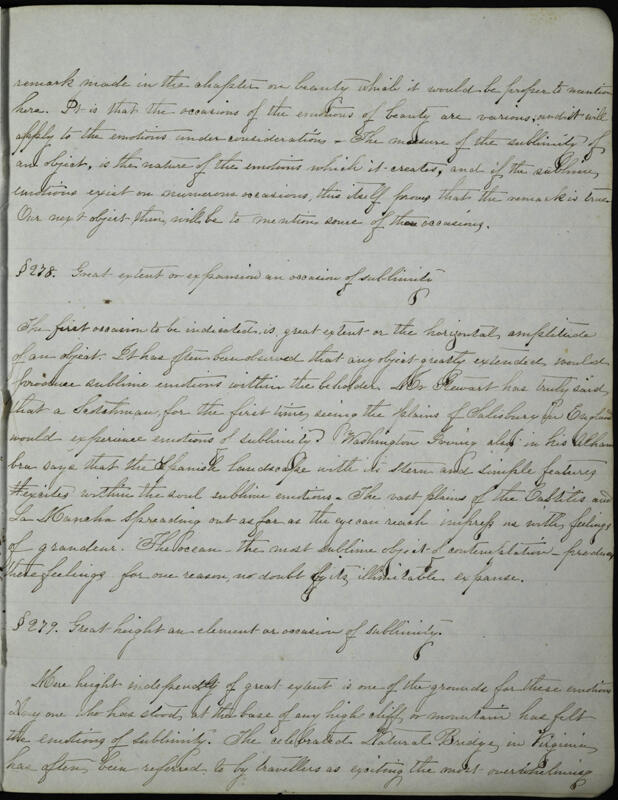 remark made in the chapter on beauty which it would be proper to mention
here. It is that the occasions of the emotions of beauty are various, and it will
apply to the emotions under consideration – The measure of the sublimity of
an object, is the nature of the emotions which it creates, and if the sublime
emotions exist on numerous occasions, this itself proves that the remark is true
Our next object then, will be to mention some of these occasions.
§ 278. Great extent or expansion an occasion of sublimity
The first occasion to be indicated, is, great extent or the horizontal amplitude
of an object. It has often been observed that any object greatly extended, would
produce sublime emotions within the beholder. Mr Stewart has truly said,
that a Scotchman, for the first time, seeing the plains of Salisbury in England
would experience emotions of sublimity. Washington Irving also in his Alham
bra says that the Spanish landscape with its stern and simple features
excites within the soul sublime emotions – The vast plains of the Castiles and
La Mancha spreading out as far as the eye can reach impress us with feelings
of grandeur. The Ocean – the most sublime object of contemplation – produces
these feelings for one reason, no doubt by its illimitable expanse.
§ 279. Great height an element or occasion of sublimity.
Mere height independently of great extent is one of the grounds for these emotions
Any one who has stood at the base of any high cliff or mountain has felt
the emotions of sublimity. The celebrated Natural Bridge in Virginia
has often been referred to by travellers as exciting the most overwhelming